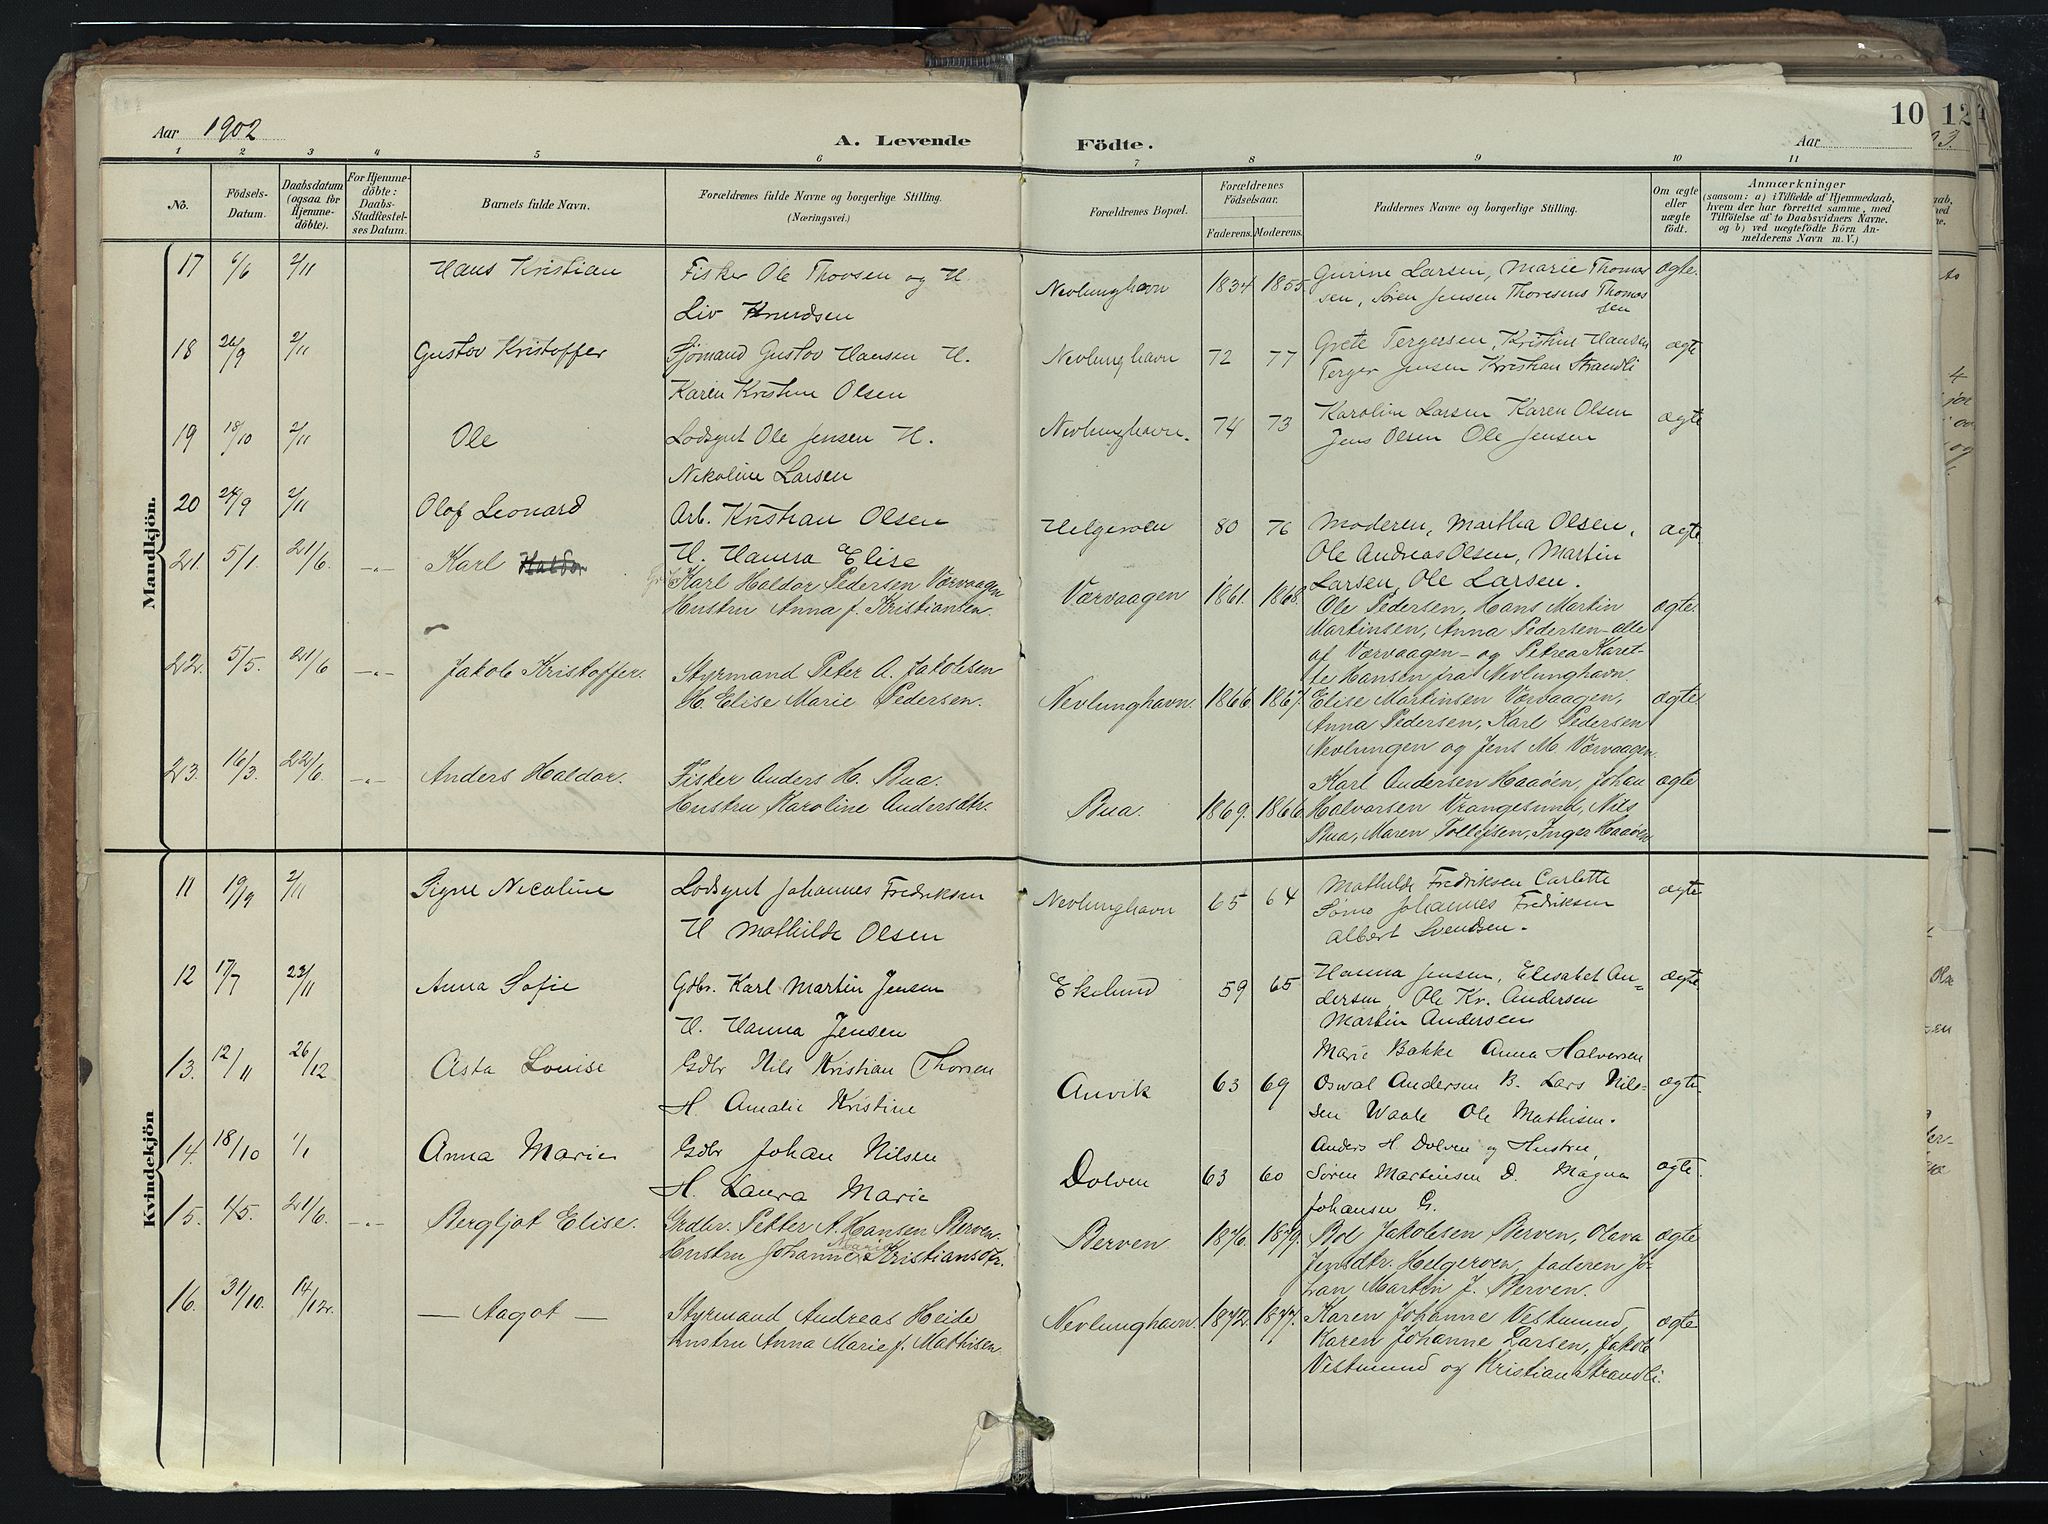 Aar 1902
A. Levende Födte.
Aar
10
12
1 2 3 4 5 6 7 8 9 10 11
No.
Födsels-Datum.
Daabsdatum (ogsaa for Hjemme-döbte).
For Hjemme-döbte: Daabs-Stadfæstelses Datum.
Barnets fulde Navn.
Forældrenes fulde Navne og borgerlige Stilling. (Næringsvei.)
Forældrenes Bopæl.
Forældrenes Födselsaar.
Faderens. Moderens.
Faddernes Navne og borgerlige Stilling.
Om ægte eller uægte födt.
Anmærkninger
(saasom: a) i Tilfælde af Hjemmedaab, hvem der har forrettet samme, med Tilföielse af to Daabsvidners Navne, og b) ved uægtefödte Börn Anmelderens Navn m. V.)
Mandkjön.
17 6/6 2/11 Hans Kristian Fisker Ole Thovsen og H. Nevlunghavn 1834 1855. Gurine Larsen, Marie Thomas ægte.
Liv Knudsen sen, Sören Jensen Thoresens Thomas
sen
18 26/9 2/11 Gustov Kristoffer Sjömand Gustov Hansen H. Nevlunghavn 72 77 Grete Tergersen, Kristine Hansen ægte
Karen Kristine Olsen Terger Jensen Kristian Strandli
19 18/10 2/11 Ole Lodsgut Ole Jensen H. Nevlunghavn. 74 73 Karoline Larsen Karen Olsen ægte
Nikoline Larsen Jens Olsen Ole Jensen
20 24/9 2/11 Olof Leonard Arb. Kristian Olsen Helgeroen 80 76 Moderen, Martha Olsen, ægte.
H. Hanna Elise Ole Andreas Olsen, Martin
Larsen, Ole Larsen.
21. 5/1. 21/6. -„- Karl Haldor Karl Haldor Pedersen Værvaagen Værvaagen 1861. 1868. Ole Pedersen, Hans Martin ægte.
Hustru Anna f. Kristiansen. Martinsen, Anna Pedersen - alle
af Værvaagen - og Petrea Karet-
te Hansen fra Nevlunghavn.
22. 5/5. 21/6 -„- Jakob Kristoffer. Styrmand Peter A. Jakobsen Nevlunghavn. 1866. 1867. Elise Martinsen Værvaagen, ægte.
H. Elise Marie Pedersen. Anna Pedersen, Karl Pedersen
Nevlungen og Jens M. Værvaagen.
23. 16/3. 22/6. -„- Anders Haldor. Fisker Anders H. Bua. Bua. 1869. 1866. Karl Andersen Haaöen, Johan ægte
Hustru Karoline Andersdtr. Halvorsen Vrangesund, Nils
Bua, Maren Tollefsen, Inger Haaöen
Kvindekjön
11 19/9 2/11 Signe Nicoline Lodsgut Johannes Fredriksen Nevlunghavn 65 64 Mathilde Fredriksen Carlotte ægte
H Mathilde Olsen Sömo Johannes Fredriksen
Albert Svendsen.
12 17/7 23/11 Anna Sofie Gdbr. Karl Martin Jensen Ekelund 59 65 Hanna Jensen, Elisabet An- ægte.
H. Hanna Jensen dersen, Ole Kr. Andersen
Martin Andersen
13. 12/11 26/12 Asta Louise Gdbr Nils Kristian Thorsen Anvik 63 69 Marie Bakke Anna Halversen ægte.
H. Amalie Kristine Oswal Andersen B. Lars Nils-
sen Waale Ole Mathisen.
14. 18/10 1/1 Anna Marie Gdbr Johan Nilsen Dolven 63 60 Anders H. Dolven og Hustru, ægte.
H. Laura Marie Sören Martinsen D. Magna
Johansen G.
15. 1/5. 21/6. -„- Bergljot Elise. Grdbr. Petter A. Hansen Berven. Berven 1876. 1879. Bol Jakobsen Berven, Olava ægte
Hustru Johanne Marie Kristiansdtr. Jensdtr. Helgeroen, Faderen Jo-
han Martin J. Berven.
16. 31/10. 14/12. - Aagot - Styrmand Andreas Heide Nevlunghavn. 1872. 1877. Karen Johanne Vestmund, ægte
Hustru Anna Marie f. Mathisen. Karen Johanne Larsen, Jakob
Vestmund og Kristian Strandli.